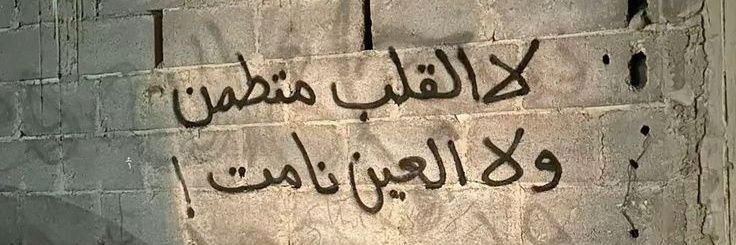 لا القلب متطمن
ولا العين نامت !